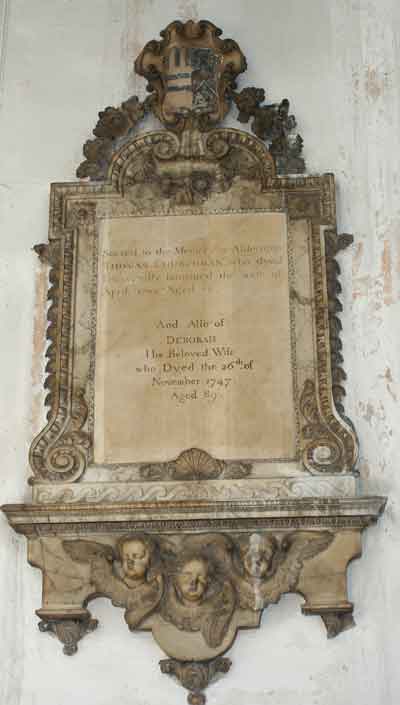 Sacred to the Memory of Alderman
THOMAS CHURCHMAN who dyed
lamented the
April Aged
And Also of
DEBORAH
His Beloved Wife
who Dyed the 26th of
November 1747
Aged 89